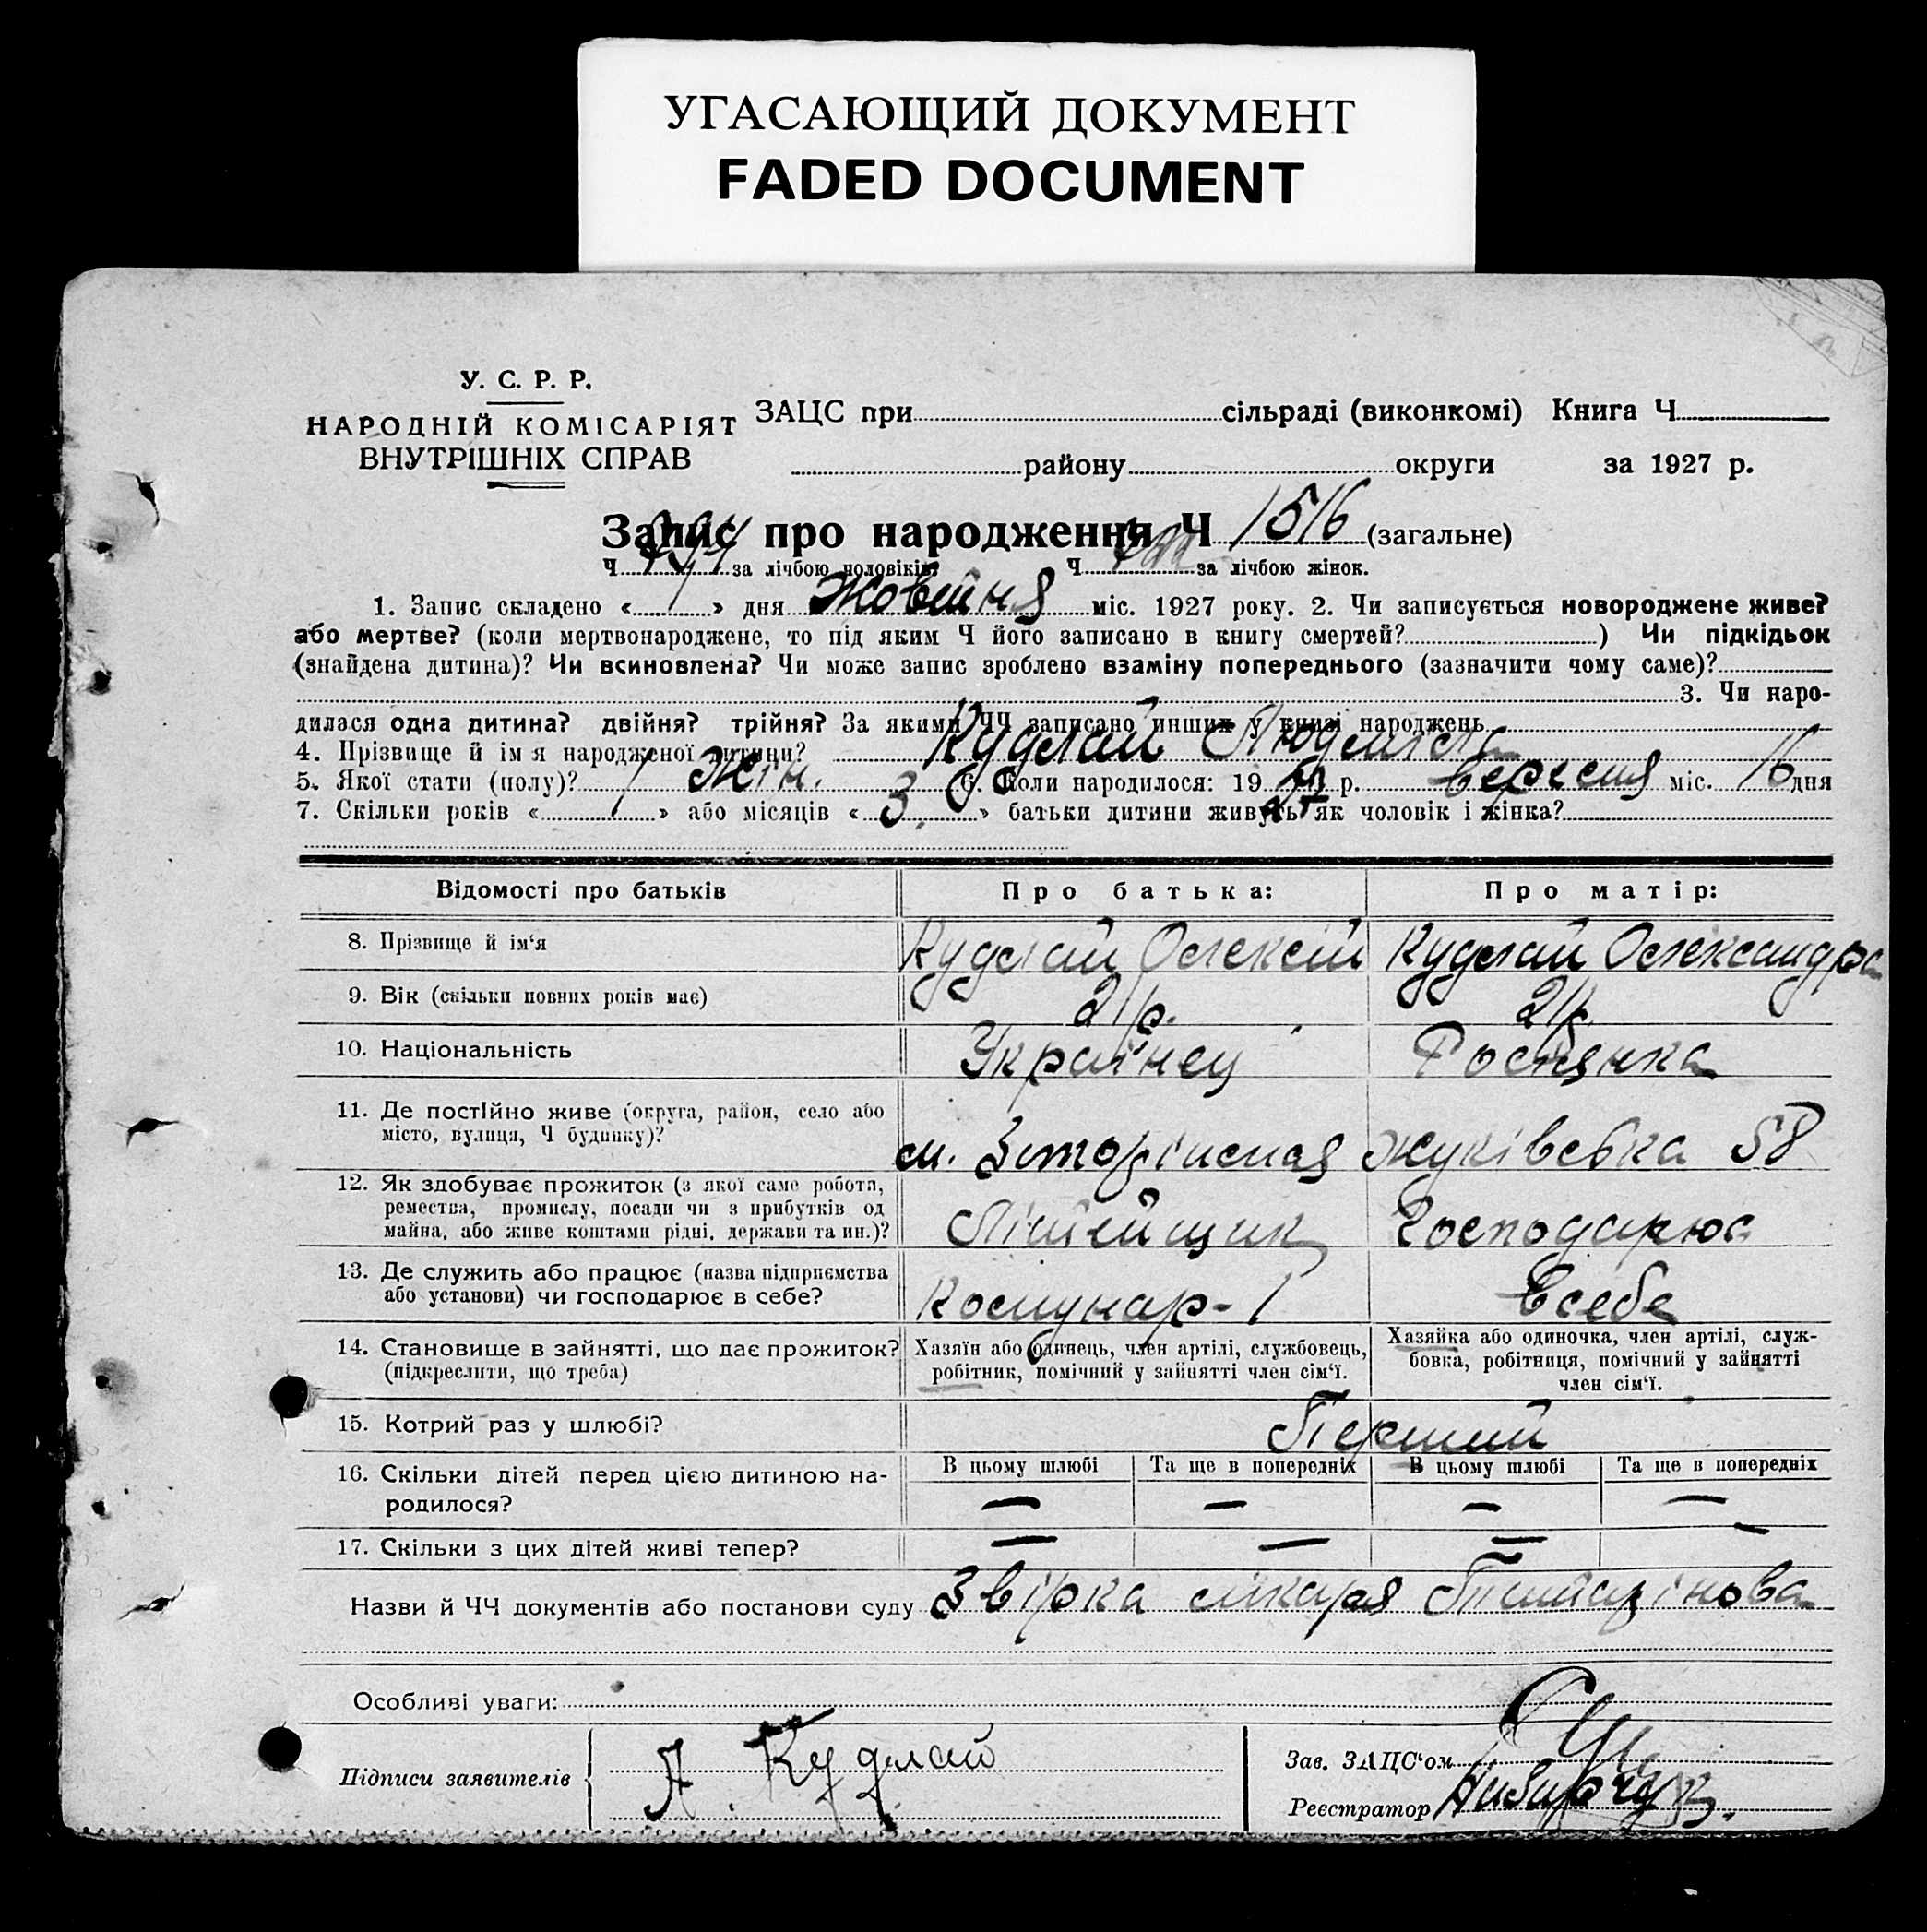 УГАСАЮЩИЙ ДОКУМЕНТ
FADED DOCUMENT
У. С. Р. Р.
НАРОДНІЙ КОМІСАРІЯТ
ВНУТРІШНІХ СПРАВ
ЗАЦС при сільраді (виконкомі) Книга Ч
району округи за 1927 р.
Запис про народження Ч 1516 (загальне)
Ч за лічбою чоловіків. Ч за лічбою жінок.
1. Запис складено « 1 » дня Жовтня міс. 1927 року. 2. Чи записується новороджене живе?
або мертве? (коли мертвонароджене, то під яким Ч його записано в книгу смертей? ) Чи підкідьок
(знайдена дитина)? Чи всиновлена? Чи може запис зроблено взаміну попереднього (зазначити чому саме)?
3. Чи наро-
дилася одна дитина? двійня? трійня? За якими ЧЧ записано инших у книзі народжень
4. Прізвище й ім'я народженої дитини? Кудлай Людміла
5. Якої стати (полу)? жін. 6. Коли народилося: 19 27 р. вересня міс. 16 дня
7. Скільки років « » або місяців « 3. » батьки дитини живуть як чоловік і жінка?
Відомості про батьків Про батька: Про матір:
8. Прізвище й ім'я Кудлай Олексій Кудлай Олександра
9. Вік (скільки повних років має) 21р. 21р.
10. Національність Українец Росіянка
11. Де постійно живе (округа, район, село або
місто, вулиця, Ч будинку)? Жуківська 58
12. Як здобуває прожиток (з якої саме роботи,
ремества, промислу, посади чи з прибутків од
майна, або живе коштами рідні, держави та ин.)? Літейщик Господарює
13. Де служить або працює (назва підприємства
або установи) чи господарює в себе? Комунар-1 В себе
14. Становище в зайнятті, що дає прожиток?
(підкреслити, що треба)
Хазяїн або одинець, член артілі, службовець,
робітник, помічний у зайнятті член сім'ї.
Хазяйка або одиночка, член артілі, служ-
бовка, робітниця, помічний у зайнятті
член сім'ї.
15. Котрий раз у шлюбі? Перший
16. Скільки дітей перед цією дитиною на-
родилося?
В цьому шлюбі Та ще в попередніх В цьому шлюбі Та ще в попередніх
— — — —
17. Скільки з цих дітей живі тепер? — — — —
Назви й ЧЧ документів або постанови суду Звірка лікаря
Особливі уваги:
Підписи заявителів А. Кудлай
Зав. ЗАЦС'ом
Реєстратор